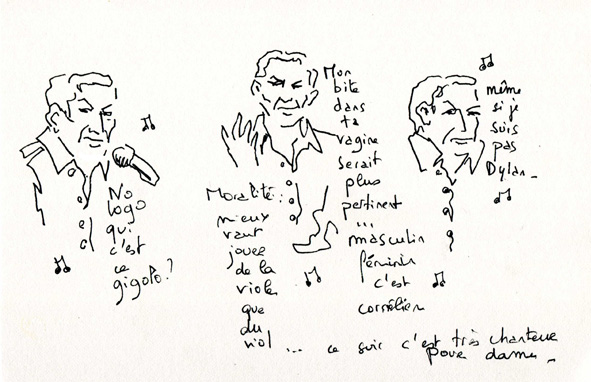 No
logo
qui
c'est
ce
gigolo?
Moralité:
mieux
vaut
jouer
de la
viole
que
du
viol
Mon
bite
dans
ta
vagine
serait
plus
pertinent
...
masculin
féminin
c'est
cornélien
même
si je
suis
pas
Dylan_
... ce soir c'est très chanteur
pour dames_